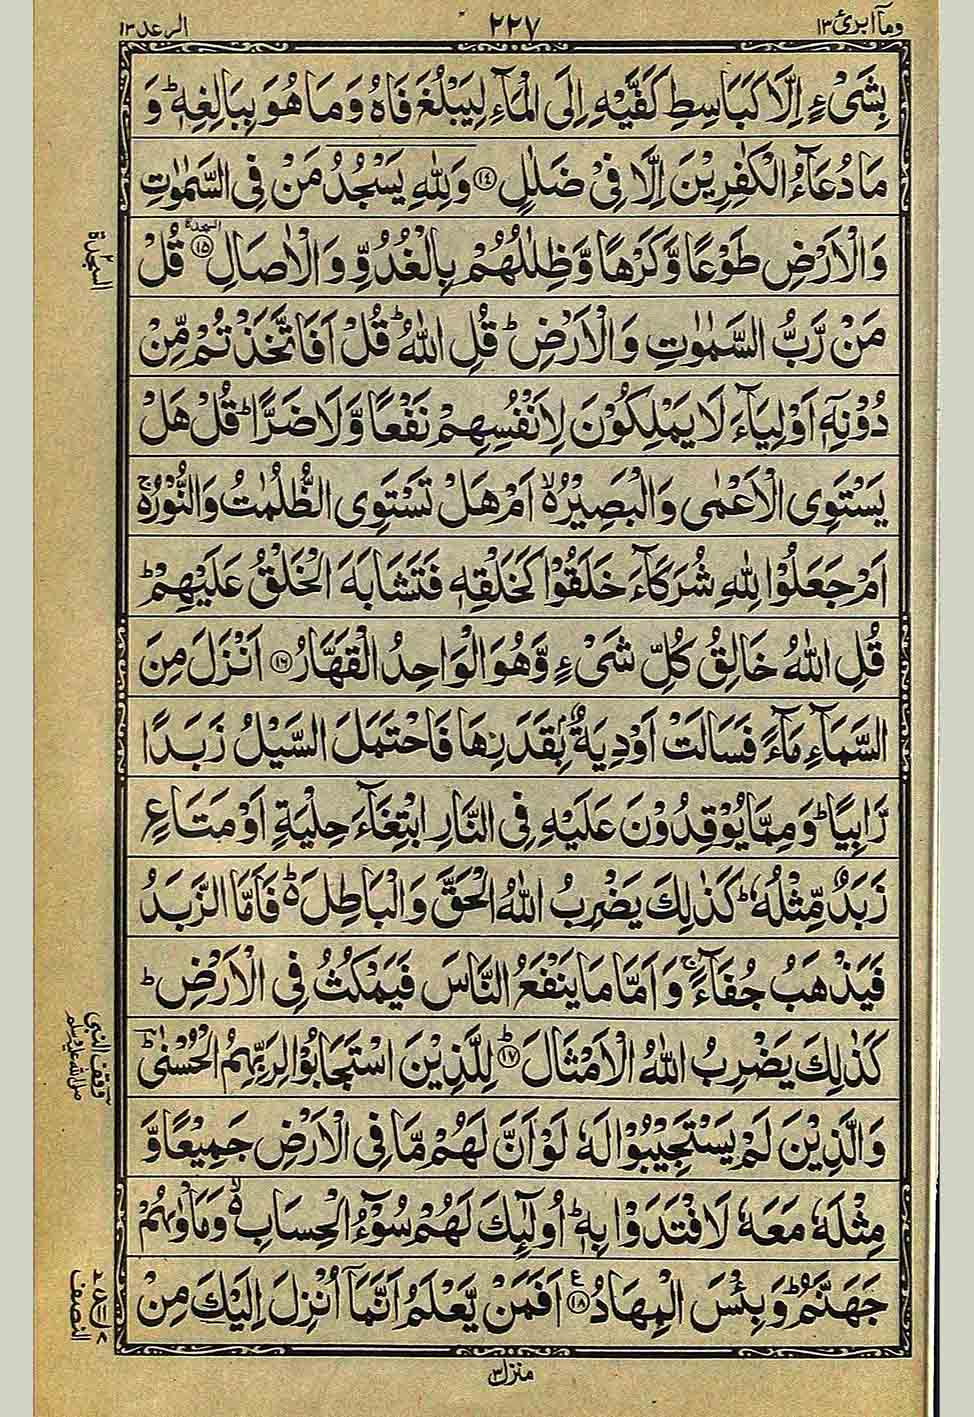 وما ابرئ ١٣
٢٢٧
الرعد ١٣
بِشَیْءٍ اِلَّا كَبَاسِطِ كَفَّیْهِ اِلَی الْمَآءِ لِیَبْلُغَ فَاهُ وَمَا هُوَ بِبَالِغِهٖ ؕ وَ
مَا دُعَآءُ الْكٰفِرِیْنَ اِلَّا فِیْ ضَلٰلٍ ۝۱۴ وَلِلّٰهِ یَسْجُدُ مَنْ فِی السَّمٰوٰتِ
وَالْاَرْضِ طَوْعًا وَّكَرْهًا وَّظِلٰلُهُمْ بِالْغُدُوِّ وَالْاٰصَالِ ۝۱۵ السجدة قُلْ
السجدة
مَنْ رَّبُّ السَّمٰوٰتِ وَالْاَرْضِ ؕ قُلِ اللّٰهُ ؕ قُلْ اَفَاتَّخَذْتُمْ مِّنْ
دُوْنِهٖۤ اَوْلِیَآءَ لَا یَمْلِكُوْنَ لِاَنْفُسِهِمْ نَفْعًا وَّلَا ضَرًّا ؕ قُلْ هَلْ
یَسْتَوِی الْاَعْمٰی وَالْبَصِیْرُ ۙ۬ اَمْ هَلْ تَسْتَوِی الظُّلُمٰتُ وَالنُّوْرُ ۚ۬
اَمْ جَعَلُوْا لِلّٰهِ شُرَكَآءَ خَلَقُوْا كَخَلْقِهٖ فَتَشَابَهَ الْخَلْقُ عَلَیْهِمْ ؕ
قُلِ اللّٰهُ خَالِقُ كُلِّ شَیْءٍ وَّهُوَ الْوَاحِدُ الْقَهَّارُ ۝۱۶ اَنْزَلَ مِنَ
السَّمَآءِ مَآءً فَسَالَتْ اَوْدِیَةٌۢ بِقَدَرِهَا فَاحْتَمَلَ السَّیْلُ زَبَدًا
رَّابِیًا ؕ وَمِمَّا یُوْقِدُوْنَ عَلَیْهِ فِی النَّارِ ابْتِغَآءَ حِلْیَةٍ اَوْ مَتَاعٍ
زَبَدٌ مِّثْلُهٗ ؕ كَذٰلِكَ یَضْرِبُ اللّٰهُ الْحَقَّ وَالْبَاطِلَ ؕ۬ فَاَمَّا الزَّبَدُ
فَیَذْهَبُ جُفَآءً ۚ وَاَمَّا مَا یَنْفَعُ النَّاسَ فَیَمْكُثُ فِی الْاَرْضِ ؕ
كَذٰلِكَ یَضْرِبُ اللّٰهُ الْاَمْثَالَ ۝۱۷ؕ لِلَّذِیْنَ اسْتَجَابُوْا لِرَبِّهِمُ الْحُسْنٰی ؕؔ
وقف النبی صلی الله علیه وسلم
وَالَّذِیْنَ لَمْ یَسْتَجِیْبُوْا لَهٗ لَوْ اَنَّ لَهُمْ مَّا فِی الْاَرْضِ جَمِیْعًا وَّ
مِثْلَهٗ مَعَهٗ لَافْتَدَوْا بِهٖ ؕ اُولٰٓئِكَ لَهُمْ سُوْٓءُ الْحِسَابِ ۙ۬ وَمَاْوٰىهُمْ
جَهَنَّمُ ؕ وَبِئْسَ الْمِهَادُ ۝۱۸ ع اَفَمَنْ یَّعْلَمُ اَنَّمَاۤ اُنْزِلَ اِلَیْكَ مِنْ
النصف
منزل ٣